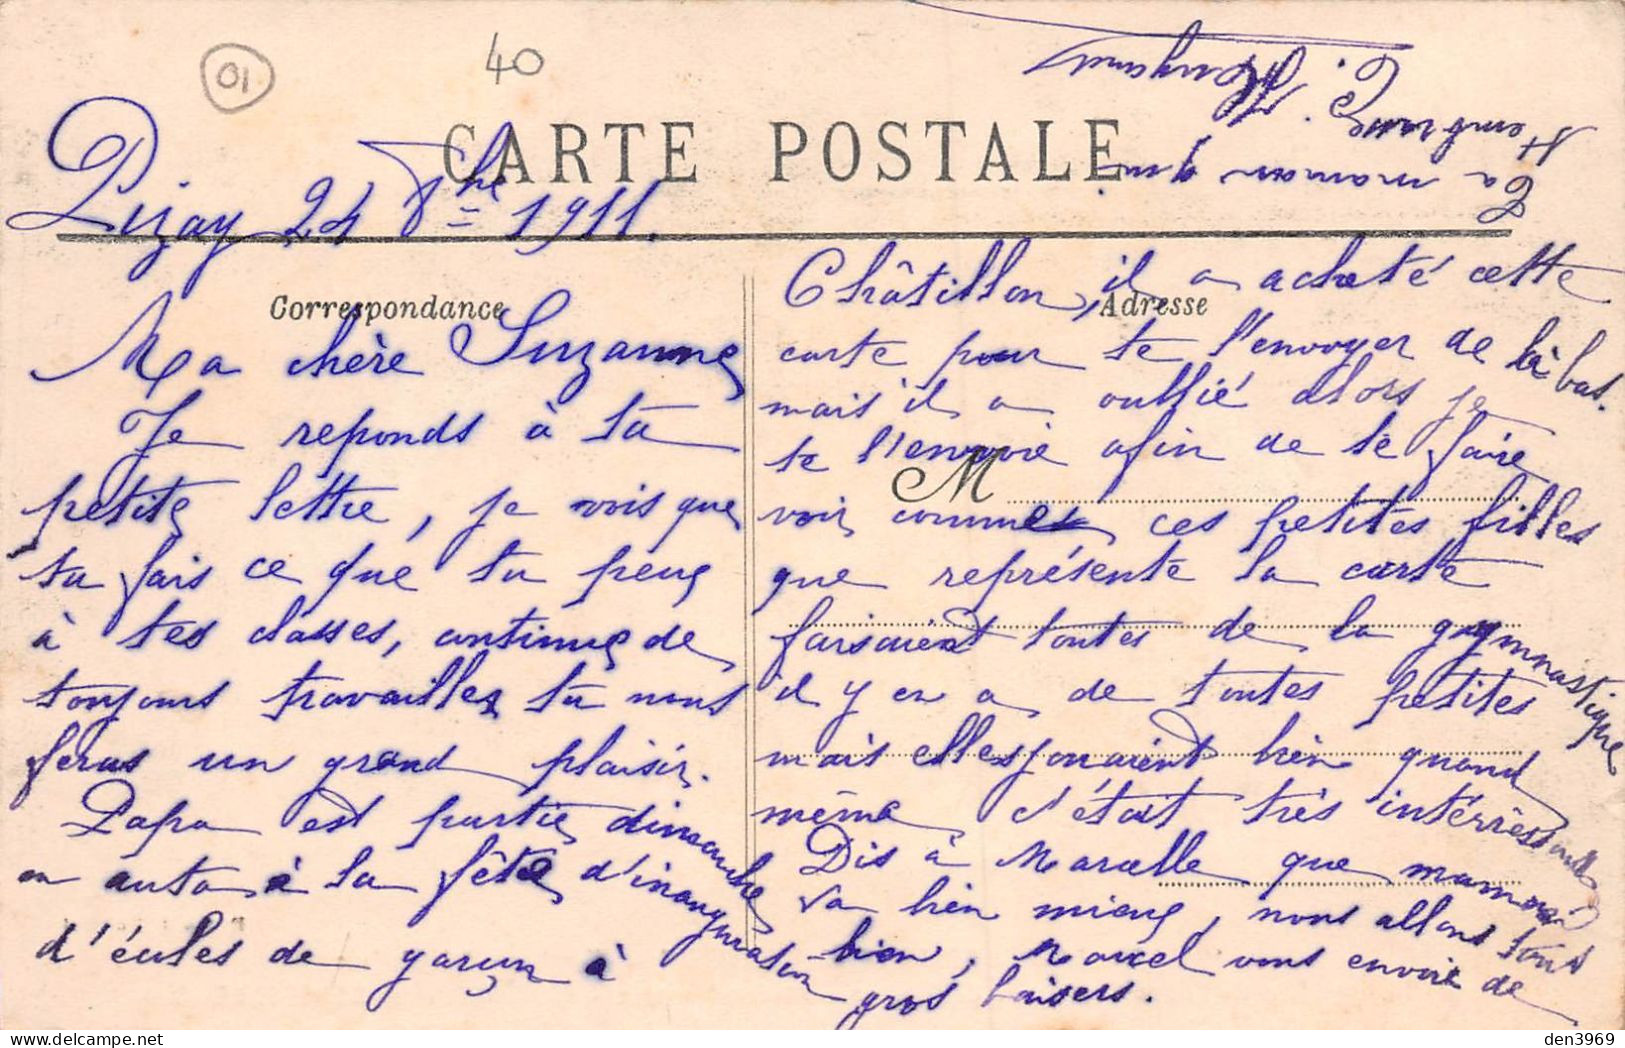 01
40
CARTE POSTALE
Pizay 24 8bre 1911.
Correspondance
Ma chère Suzanne
Je reponds à ta
petite lettre, je vois que
tu fais ce que tu peux
à tes classes, continue de
toujours travailler tu nous
feras un grand plaisir.
Papa est partie dimanche
en auto à la fête d'inauguration
d'écoles de garçon à
Adresse
M
Châtillon, il a acheté cette
carte pour te l'envoyer de là bas.
mais il a oublié alors je
te l'envoie afin de te faire
voir comme ces petites filles
que représente la carte
faisaient toutes de la gymnastique
il y en a de toutes petites
mais elles jouaient bien quand
même, c'était très intérressant
Dis à Marcelle que maman
va bien mieux, nous allons tous
bien, Marcel vous envoie de
gros baisers.
Ta maman qui
t'embrasse
den3969